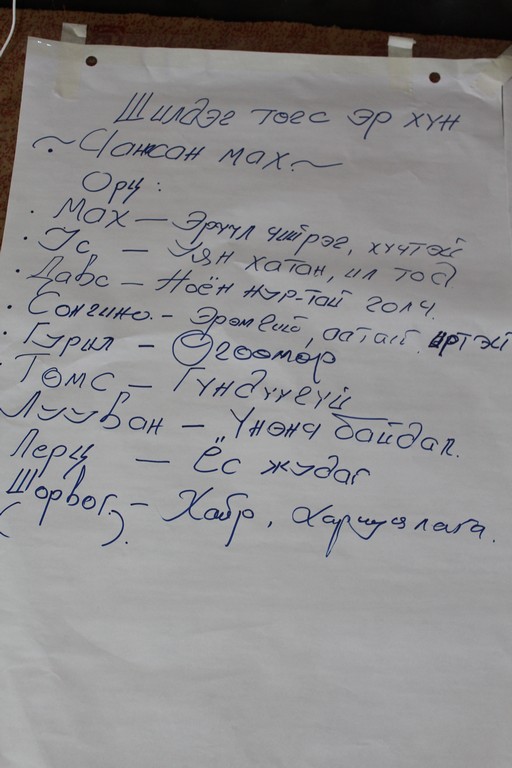 Шилдэг төгс эр хүн
~ Чансан мах. ~
Орц:
· Мах — Эрүүл чийрэг, хүчтэй
· Ус — Уян хатан, ил тод
· Давс — Ноён нур-тай голч.
· Сонгино. - Эрэмгий, аатай. иртэй
· Гурил — Өгөөмөр
· Төмс — Гүндүүгүй
Лууван — Үнэнч байдал.
Перц — Ёс жудаг
Шорвог. - Хайр, Хариуцлага.
( ).